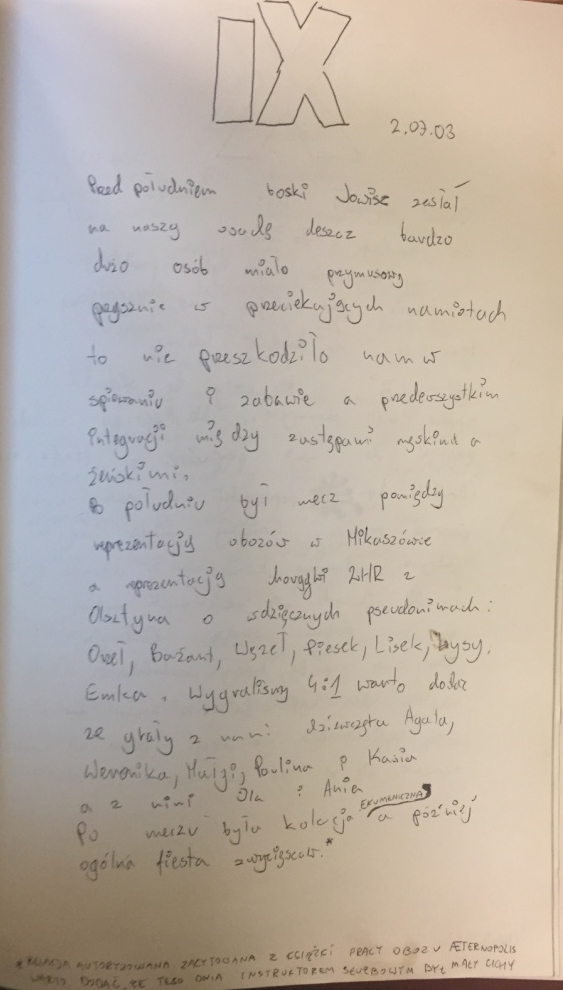 IX
2.07.03
Przed południem boski Jowisz zesłał
na naszą osadę deszcz bardzo
dużo osób miało przymusową
w przeciekających namiotach
to nie przeszkodziło nam w
śpiewaniu i zabawie a przedewszystkim
integracji między zastępami męskimi a
żeńskimi.
Po południu był mecz pomiędzy
reprezentacją obozów w Mikaszówie
a reprezentacją chorągwi ZHR z
Olsztyna o wdzięcznych pseudonimach:
Orzeł, Bażant, Wąszeł, Piesek, Lisek, Łysy,
Emka. Wygraliśmy 4:1 warto dodać
że grały z nami dziewczęta Agata,
Weronika, Małgi, Paulina i Kasia
a z nimi Ola i Ania
Po meczu była kolacja EKUMENICZNA a później
ogólna fiesta zwycięzców.*
*RELACJA AUTORYZOWANA ZACYTOWANA Z KSIĄŻKI PRACY OBOZU ÆTERNOPOLIS
WARTO DODAĆ, ŻE TEGO DNIA INSTRUKTOREM SŁUŻBOWYM BYŁ MAŁY CICHY